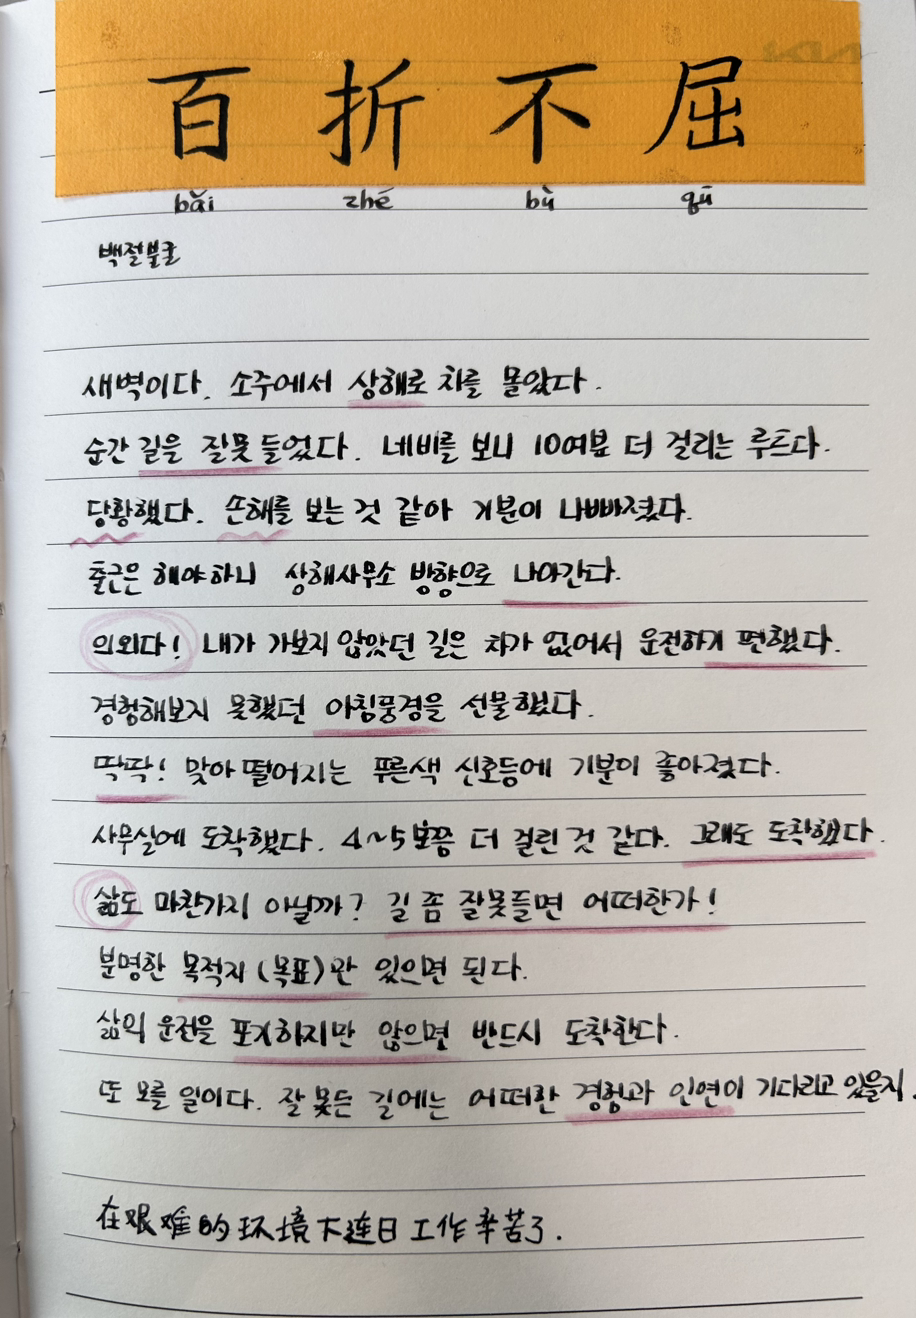 百折不屈
bǎi zhé bù qū
백절불굴
새벽이다. 소주에서 상해로 차를 몰았다.
순간 길을 잘못 들었다. 네비를 보니 10여분 더 걸리는 루트다.
당황했다. 손해를 보는 것 같아 기분이 나빠졌다.
출근은 해야하니 상해사무소 방향으로 나아간다.
의외다! 내가 가보지 않았던 길은 차가 없어서 운전하기 편했다.
경험해보지 못했던 아침풍경을 선물했다.
딱딱! 맞아 떨어지는 푸른색 신호등에 기분이 좋아졌다.
사무실에 도착했다. 4~5분쯤 더 걸린 것 같다. 그래도 도착했다.
삶도 마찬가지 아닐까? 길 좀 잘못들면 어떠한가!
분명한 목적지(목표)만 있으면 된다.
삶의 운전을 포기하지만 않으면 반드시 도착한다.
또 모를 일이다. 잘못든 길에는 어떠한 경험과 인연이 기다리고 있을지.
在艰难的环境下连日工作辛苦了.